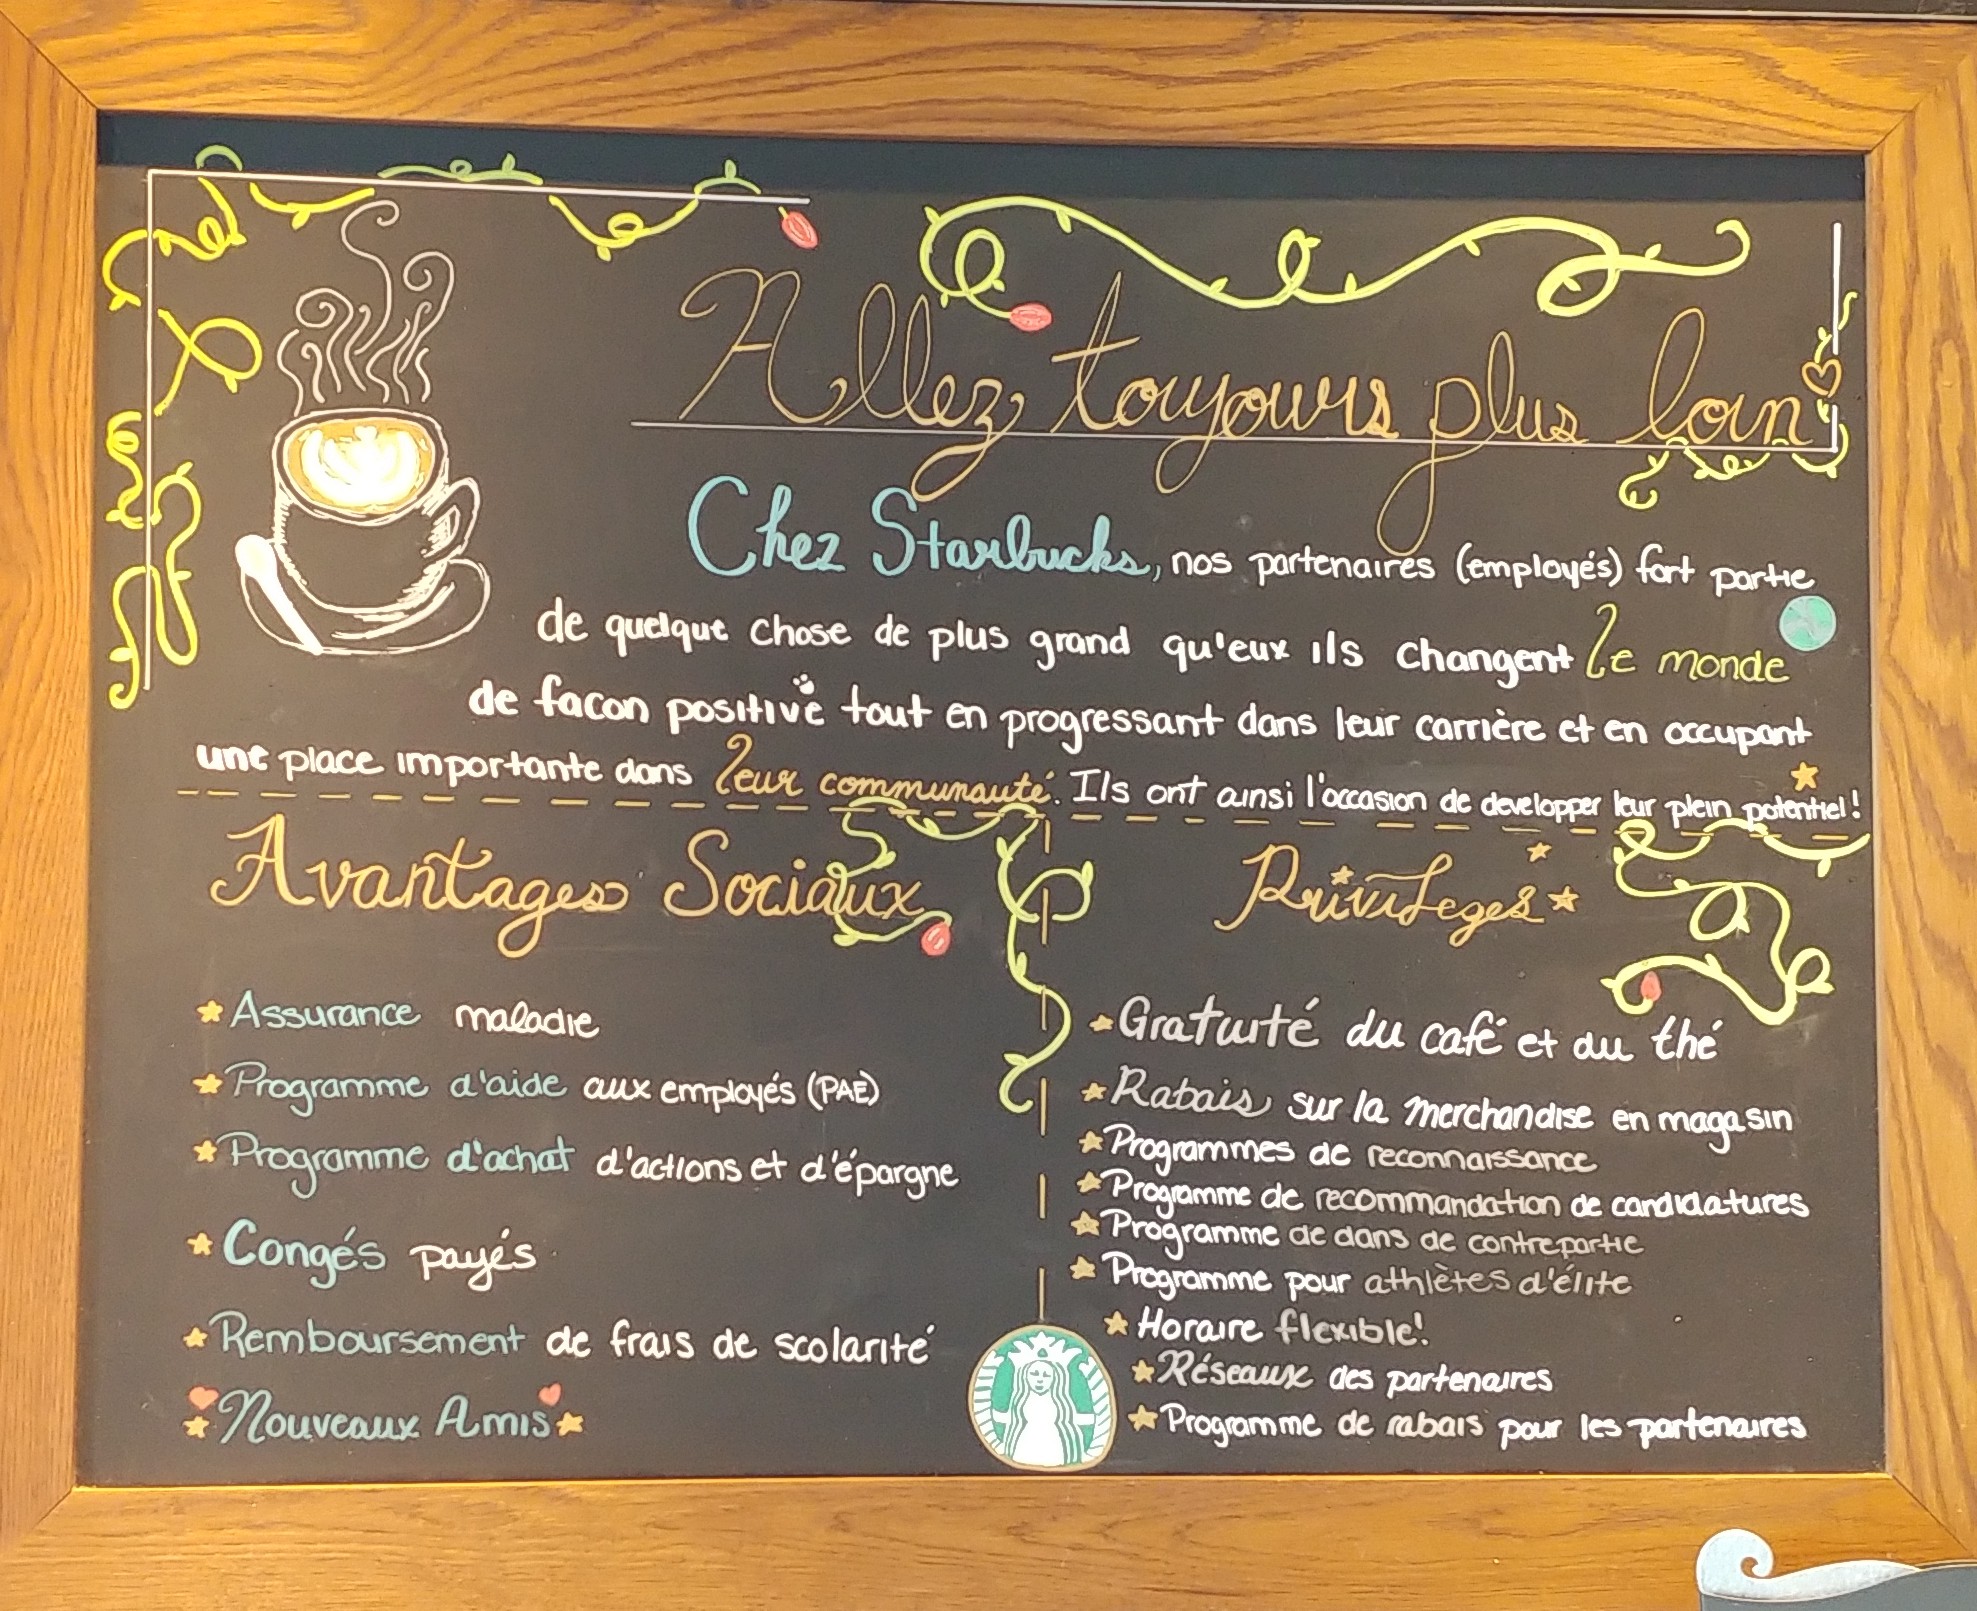 Allez toujours plus loin
Chez Starbucks, nos partenaires (employés) font partie
de quelque chose de plus grand qu'eux ils changent le monde
de facon positive tout en progressant dans leur carrière et en occupant
une place importante dans leur communauté. Ils ont ainsi l'occasion de developper leur plein potentiel!
Avantages Sociaux
Assurance maladie
Programme d'aide aux employés (PAE)
Programme d'achat d'actions et d'épargne
Congés payés
Remboursement de frais de scolarité
Nouveaux Amis
Privileges
Gratuité du café et du thé
Rabais sur la merchandise en magasin
Programmes de reconnaissance
Programme de recommandation de candidatures
Programme de dans de contrepartie
Programme pour athlètes d'élite
Horaire flexible!
Réseaux des partenaires
Programme de rabais pour les partenaires